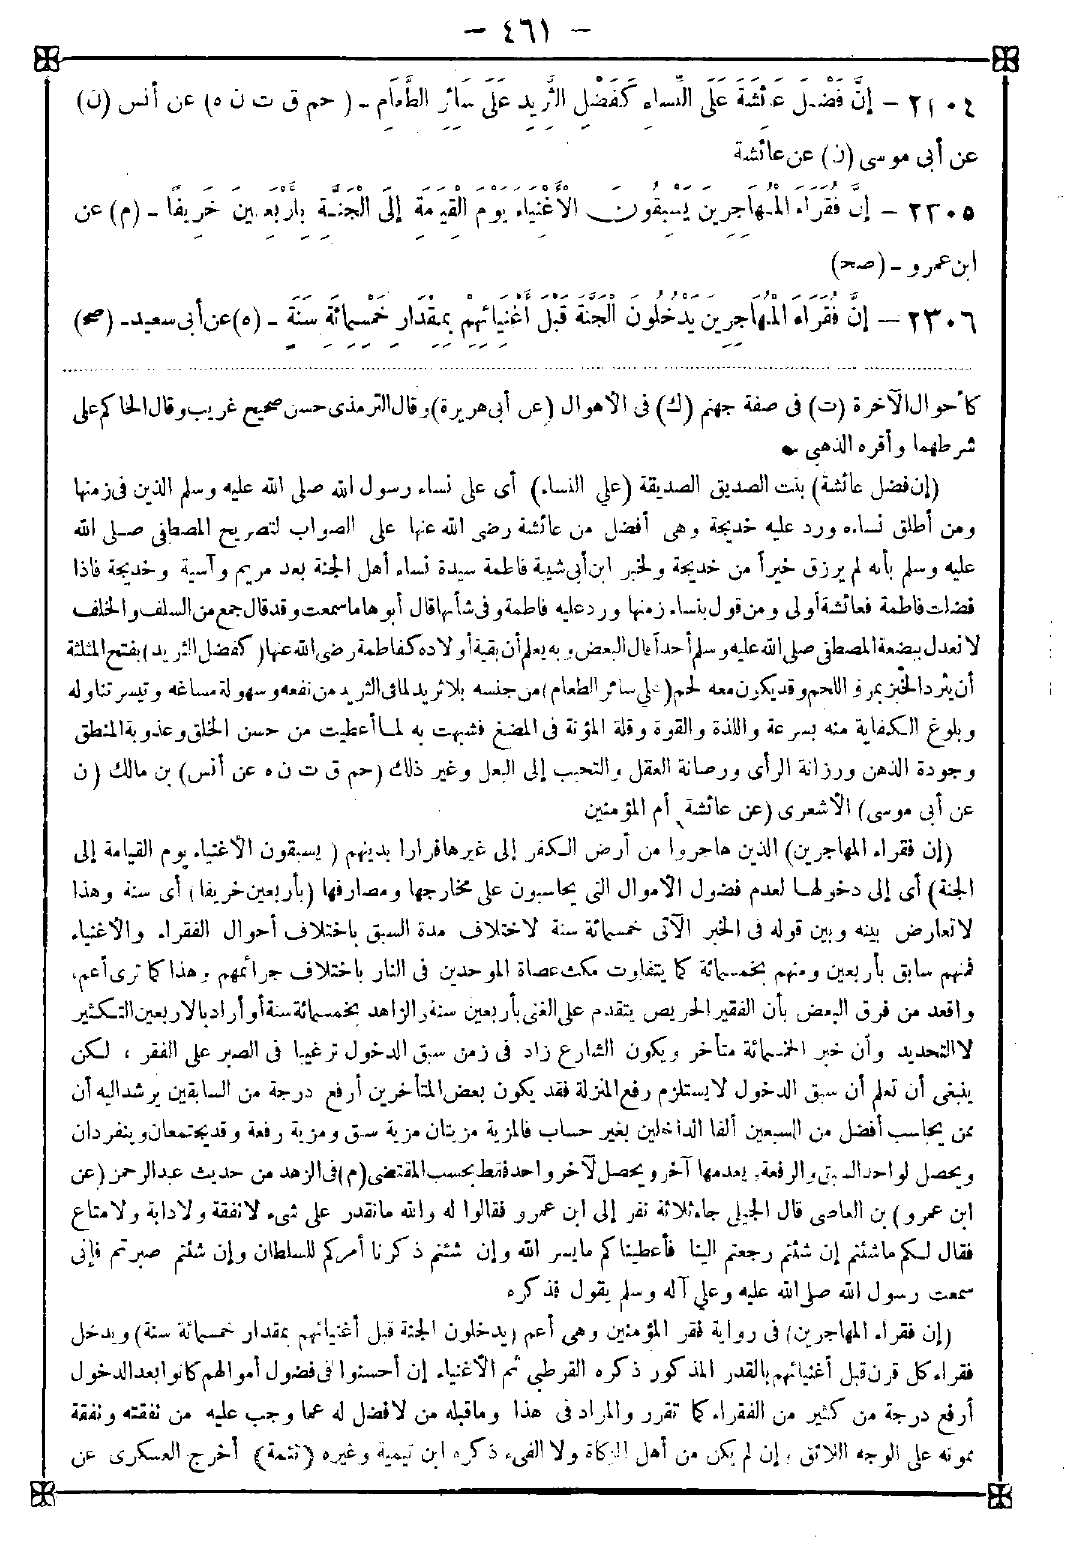 - ٤٦١ -
٢١٠٤ - إِنَّ فَضْلَ عَائِشَةَ عَلَى النِّسَاءِ كَفَضْلِ الثَّرِيدِ عَلَى سَائِرِ الطَّعَامِ - ( حم ق ت ن ه) عن أنس (ن)
عن أبى موسى (ن) عن عائشة
٢٣٠٥ - إِنَّ فُقَرَاءَ الْمُهَاجِرِينَ يَسْبِقُونَ الْأَغْنِيَاءَ يَوْمَ الْقِيَامَةِ إِلَى الْجَنَّةِ بِأَرْبَعِينَ خَرِيفًا - (م) عن
ابن عمرو - (صح)
٢٣٠٦ - إِنَّ فُقَرَاءَ الْمُهَاجِرِينَ يَدْخُلُونَ الْجَنَّةَ قَبْلَ أَغْنِيَائِهِمْ بِمِقْدَارِ خَمْسِمِائَةِ سَنَةٍ - (ه) عن أبى سعيد - (صح)
كأحوال الآخرة (ت) فى صفة جهنم (ك) فى الأهوال (عن أبى هريرة) وقال الترمذى حسن صحيح غريب وقال الحاكم على
شرطهما وأقره الذهبى .
(إن فضل عائشة) بنت الصديق الصديقة (على النساء) أى على نساء رسول الله صلى الله عليه وسلم الذين فى زمنها
ومن أطلق نساءه ورد عليه خديجة وهى أفضل من عائشة رضى الله عنها على الصواب لتصريح المصطفى صلى الله
عليه وسلم بأنه لم يرزق خيراً من خديجة ولخبر ابن أبى شيبة فاطمة سيدة نساء أهل الجنة بعد مريم وآسية وخديجة فاذا
فضلت فاطمة فعائشة أولى ومن قول بنساء زمنها ورد عليه فاطمة وفى شأنها قال أبوها ما سمعت وقد قال جمع من السلف والخلف
لا نعدل ببضعة المصطفى صلى الله عليه وسلم أحداً قال البعض وبه يعلم أن بقية أولاده كفاطمة رضى الله عنها (كفضل الثريد) بفتح المثلثة
أن يثرد الخبز بمرق اللحم وقد يكون معه لحم (على سائر الطعام) من جنسه بلا ثريد لما فى الثريد من نفعه وسهولة مساغه وتيسر تناوله
وبلوغ الكفاية منه بسرعة واللذة والقوة وقلة المؤنة فى المضغ فشبهت به لما أعطيت من حسن الخلق وعذوبة المنطق
وجودة الذهن ورزانة الرأى ورصانة العقل والتحبب إلى البعل وغير ذلك (حم ق ت ن ه عن أنس) بن مالك (ن
عن أبى موسى) الأشعرى (عن عائشة) أم المؤمنين
(إن فقراء المهاجرين) الذين هاجروا من أرض الكفر إلى غيرها فرارا بدينهم (يسبقون الأغنياء يوم القيامة إلى
الجنة) أى إلى دخولها لعدم فضول الأموال التى يحاسبون على مخارجها ومصارفها (بأربعين خريفا) أى سنة وهذا
لا تعارض بينه وبين قوله فى الخبر الآتى خمسمائة سنة لاختلاف مدة السبق باختلاف أحوال الفقراء والأغنياء
فمنهم سابق بأربعين ومنهم بخمسمائة كما يتفاوت مكث عصاة الموحدين فى النار باختلاف جرائمهم وهذا كما ترى أعم،
واقعد من فرق البعض بأن الفقير الحريص يتقدم على الغنى بأربعين سنة والزاهد بخمسمائة سنة أو أراد بالاربعين التكثير
لا التحديد وأن خبر الخمسمائة متأخر ويكون الشارع زاد فى زمن سبق الدخول ترغيبا فى الصبر على الفقر ، لكن
ينبغى أن تعلم أن سبق الدخول لا يستلزم رفع المنزلة فقد يكون بعض المتأخرين أرفع درجة من السابقين يرشد اليه أن
ممن يحاسب أفضل من السبعين ألفا الداخلين بغير حساب فالمزية مزيتان مزية سبق ومزية رفعة وقد يجتمعان وينفردان
ويحصل لواحد السبق والرفعة ويعدمها آخر ويحصل لآخر واحد فقط بحسب المقتضى (م) فى الزهد من حديث عبد الرحمن (عن
ابن عمرو) بن العاصى قال الجبلى جاء ثلاثة نفر إلى ابن عمرو فقالوا له والله ما نقدر على شىء لا نفقة ولا دابة ولا متاع
فقال لكم ما شئتم إن شئتم رجعتم الينا فأعطيناكم ما يسر الله وإن شئتم ذكرنا أمركم للسلطان وإن شئتم صبرتم فإنى
سمعت رسول الله صلى الله عليه وعلى آله وسلم يقول فذكره
(إن فقراء المهاجرين) فى رواية فقر المؤمنين وهى أعم (يدخلون الجنة قبل أغنيائهم بمقدار خمسمائة سنة) ويدخل
فقراء كل قرن قبل أغنيائهم بالقدر المذكور ذكره القرطبى ثم الأغنياء إن أحسنوا فى فضول أموالهم كانوا بعد الدخول
أرفع درجة من كثير من الفقراء كما تقرر والمراد فى هذا وماقبله من لا فضل له عما وجب عليه من نفقته ونفقة
ممونه على الوجه اللائق ، إن لم يكن من أهل الزكاة ولا الفىء ذكره ابن تيمية وغيره (تتمة) أخرج العسكرى عن